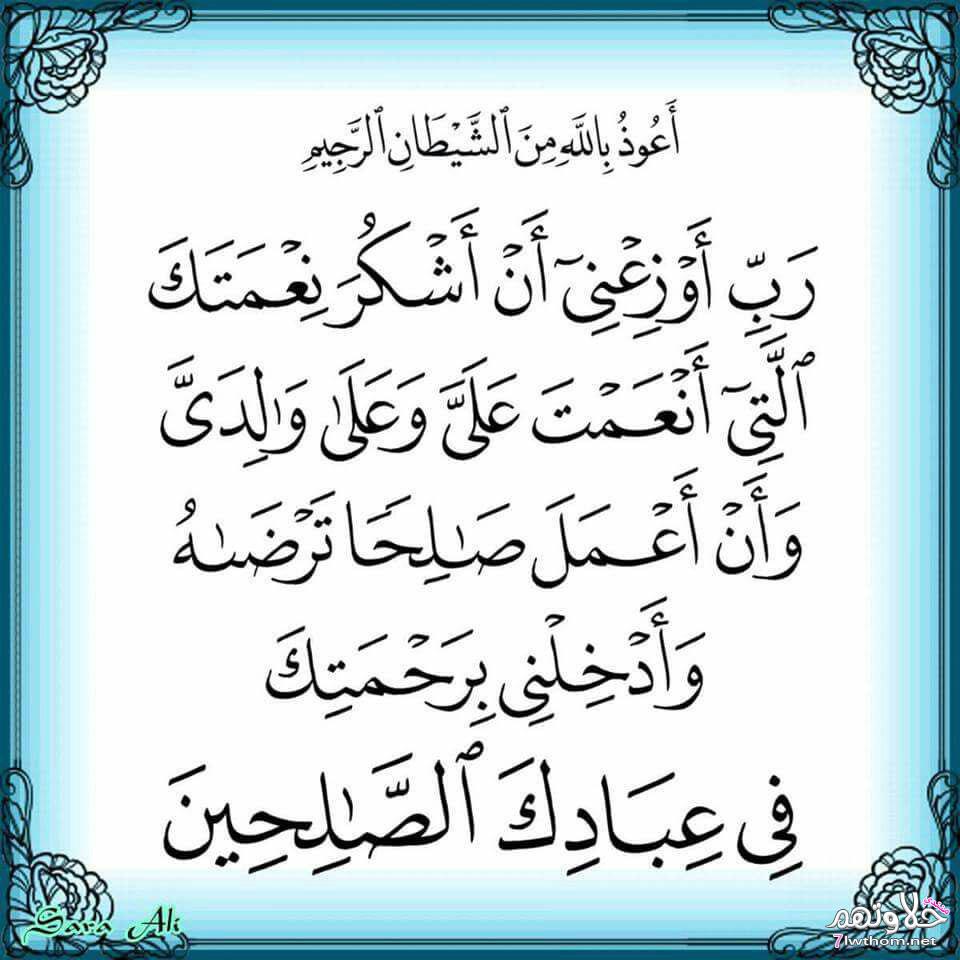 أَعُوذُ بِاللَّهِ مِنَ ٱلشَّيْطَانِ ٱلرَّجِيمِ
رَبِّ أَوْزِعْنِىٓ أَنْ أَشْكُرَ نِعْمَتَكَ
ٱلَّتِىٓ أَنْعَمْتَ عَلَىَّ وَعَلَىٰ وَٰلِدَىَّ
وَأَنْ أَعْمَلَ صَـٰلِحًا تَرْضَىٰهُ
وَأَدْخِلْنِى بِرَحْمَتِكَ
فِى عِبَادِكَ ٱلصَّـٰلِحِينَ
Sara Ali
منتدى
حلاوتهم
7lwthom.net